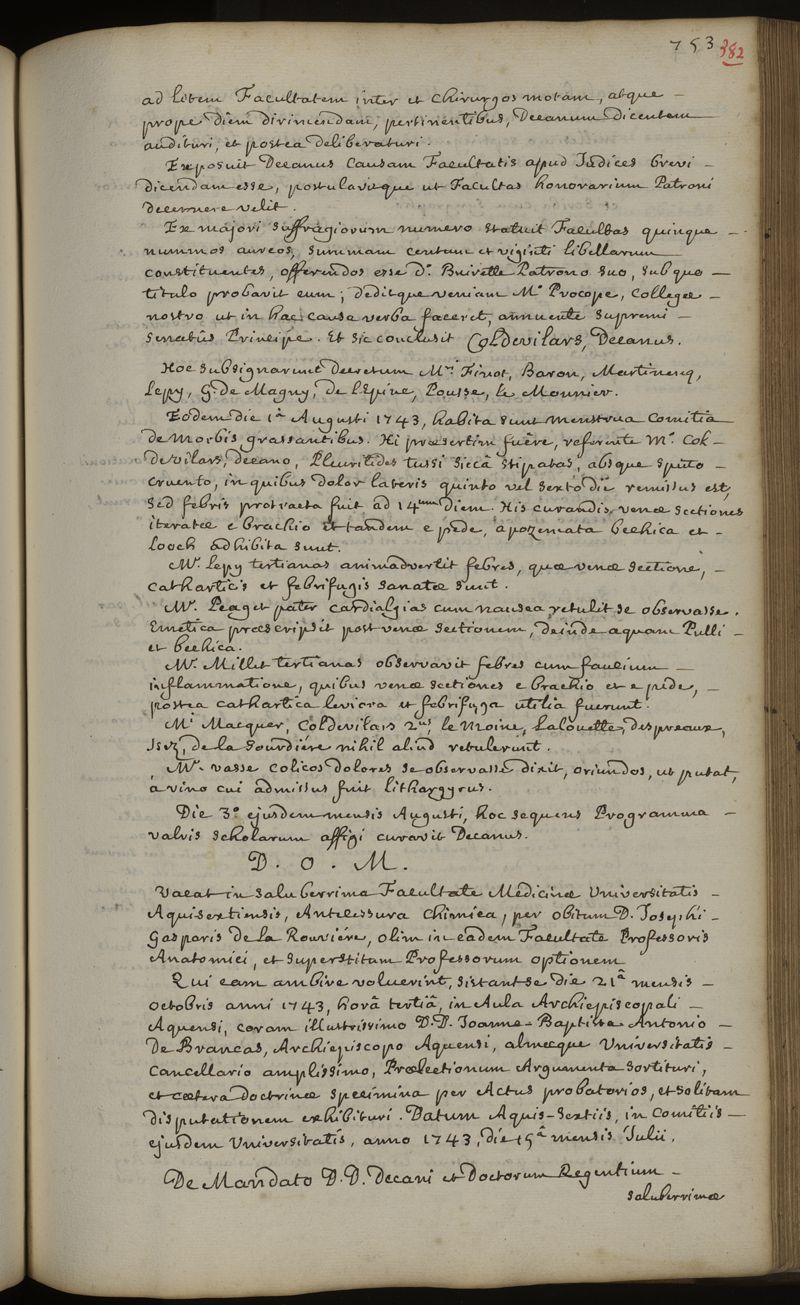 753 382
ad litem Facultatem inter et chirurgos motam, atque
prope diem dirimendam, pertinentibus, Decanum dicentem
audituri, et postea deliberaturi.
Exposuit Decanus causam Facultatis apud Judices brevi
dicendam esse, postulavitque ut Facultas honorarium Patroni
decernere velit.
Ex majori suffragiorum numero statuit Facultas quinque
nummos aureos, summam centum et viginti libellarum
constituentes, offerendos esse D.° Bvirette Patrono suo, sub quo
titulo probavit eum; deditque veniam M.° Procope, Collegæ
nostro ut in hac causa verba faceret, annuente supremi
senatûs Principe. Et sic conclusit Coldevilars, Decanus.
Hoc subsignarunt decretum M.ri Finot, Baron, Martinencq,
Lepy, G. de Magny, de l'Epine, Pousse, le Monnier.
Eodem die 1.â Augusti 1743, habita sunt menstrua Comitia
de morbis grassantibus. Hi præsertim fuêre, referente M.° Col-
devilars, decano, Pleuritides tussi siccâ stipatas, absque sputo
cruento, in quibus dolor lateris quinto vel sexto die remissus est,
sed febris protracta fuit ad 14.um diem. His curandis, venæ sectiones
iteratæ e brachio et tandem e pede, apozemata bechica et
looch adhibita sunt.
M.r Lepy tertianas animadvertit febres, quæ venæ sectione,
catharticis et febrifugis sanatæ sunt.
M.r Peaget pater cardialgias cum nausea retulit se observasse.
Emetica præscripsit post venæ sectionem, deinde aquam Pulli
et bechica.
M.r Millet tertianas observavit febres cum faucium
inflammatione, quibus venæ sectiones e brachio et e pede,
postea cathartica leviora et febrifuga utilia fuerunt.
M.i Macquer, Coldevilars 2.us, le Moine, Lalouette, despreaux,
Isez, de la Sourdiére nihil aliud retulerunt.
M.r vasse colicos dolores se observasse dixit, oriundos, ut putat,
a vino cui admissus fuit lithargyrus.
Die 3.° ejusdem mensis Augusti, hoc sequens Programma
valvis scholarum affigi curavit Decanus.
D. O. M.
Vacat in saluberrima Facultate Medicinæ Universitatis
Aquisextiensis, Antecessura Chimica, per obitum D. Josephi
Gasparis de la Rouviére, olim in eadem Facultate Professoris
Anatomici, et superstitum Professorum optionem
Qui eam ambire voluerint, sistant se die 21.â mensis
octobris anni 1743, horâ tertiâ, in Aula Archiepiscopali
Aquensi, coram illustrissimo D.D. Joanne-Baptista Antonio
De Brancas, Archiepiscopo Aquensi, almæque Universitatis
Cancellario amplissimo, Prælectionum Argumenta sortituri,
et cætera doctrinæ specimina per Actus probatorios, et solitam
disputationem exhibituri. Datum Aquis-Sextiis, in Comitiis
ejusdem Universitatis, anno 1743, die 15.â mensis Julii,
De Mandato D.D. Decani et Doctorum Regentium
saluberrimæ